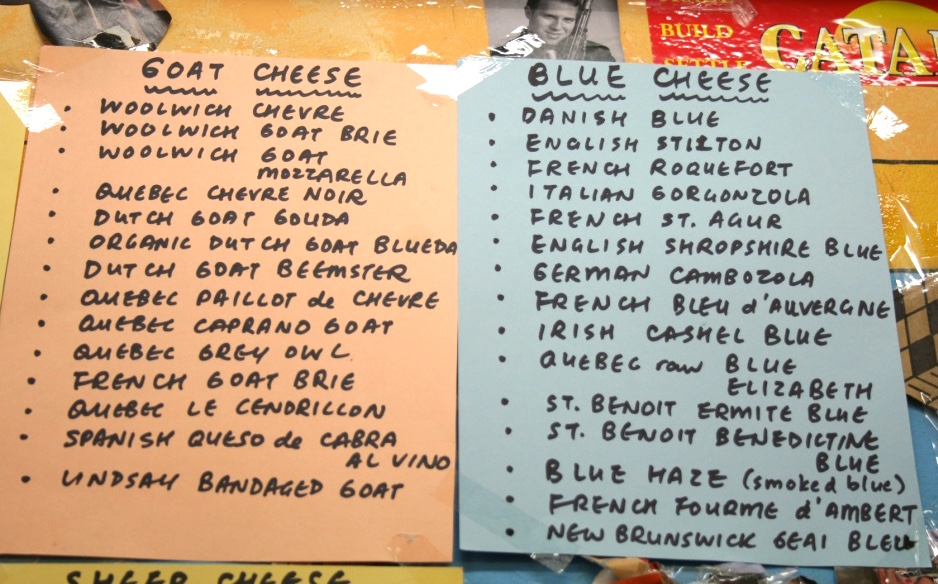 BUILD
CATA
GOAT CHEESE
• WOOLWICH CHEVRE
• WOOLWICH GOAT BRIE
• WOOLWICH GOAT
MOZZARELLA
• QUEBEC CHEVRE NOIR
• DUTCH GOAT GOUDA
• ORGANIC DUTCH GOAT BLUEDA
• DUTCH GOAT BEEMSTER
• QUEBEC PAILLOT de CHEVRE
• QUEBEC CAPRANO GOAT
• QUEBEC GREY OWL
• FRENCH GOAT BRIE
• QUEBEC LE CENDRILLON
• SPANISH QUESO de CABRA
AL VINO
• LINDSAY BANDAGED GOAT
BLUE CHEESE
• DANISH BLUE
• ENGLISH STILTON
• FRENCH ROQUEFORT
• ITALIAN GORGONZOLA
• FRENCH ST. AGUR
• ENGLISH SHROPSHIRE BLUE
• GERMAN CAMBOZOLA
• FRENCH BLEU d'AUVERGNE
• IRISH CASHEL BLUE
• QUEBEC raw BLUE
ELIZABETH
• ST. BENOIT ERMITE BLUE
• ST. BENOIT BENEDICTINE
BLUE
• BLUE HAZE (smoked blue)
• FRENCH FOURME d'AMBERT
• NEW BRUNSWICK GEAI BLEU
SHEEP CHEESE